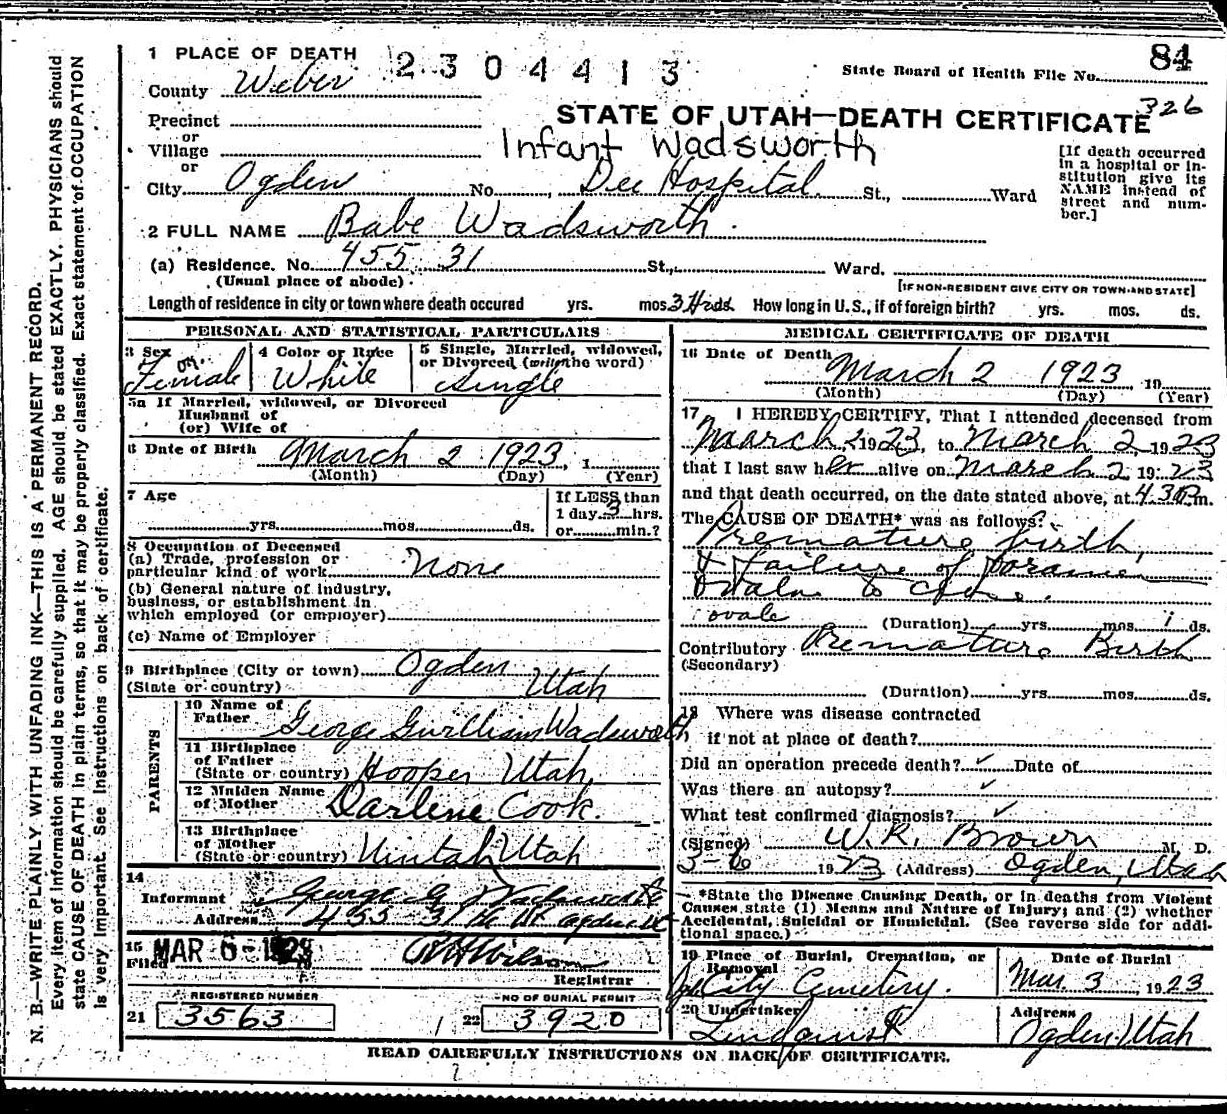 84
1 PLACE OF DEATH 2304413
State Board of Health File No.
County Weber
326
Precinct
STATE OF UTAH—DEATH CERTIFICATE
or
Village
Infant Wadsworth
or
City Ogden No. , Dee Hospital St., Ward
[If death occurred
in a hospital or in-
stitution give its
NAME instead of
street and num-
ber.]
2 FULL NAME Babe Wadsworth.
(a) Residence. No. 455 31 St., Ward.
(Usual place of abode)
[IF NON-RESIDENT GIVE CITY OR TOWN AND STATE]
Length of residence in city or town where death occured yrs. mos. 3 Hrs ds. How long in U.S., if of foreign birth? yrs. mos. ds.
PERSONAL AND STATISTICAL PARTICULARS
3 Sex Female
4 Color or Race White
5 Single, Married, widowed,
or Divorced (write the word)
Single
5a If Married, widowed, or Divorced
Husband of
(or) Wife of
6 Date of Birth March 2 1923, 1
(Month) (Day) (Year)
7 Age yrs. mos. ds.
If LESS than
1 day 3 hrs.
or min.?
8 Occupation of Deceased
(a) Trade, profession or
particular kind of work None
(b) General nature of industry,
business, or establishment in
which employed (or employer)
(c) Name of Employer
9 Birthplace (City or town) Ogden
(State or country) Utah
PARENTS
10 Name of
Father George Gwilliam Wadsworth
11 Birthplace
of Father
(State or country) Hooper Utah.
12 Maiden Name
of Mother Darlene Cook.
13 Birthplace
of Mother
(State or country) Uintah Utah
14
Informant George G Wadsworth
Address 455 31 St. Ogden Ut
15
Filed MAR 6 - 1923
Wilson
Registrar
REGISTERED NUMBER
21 3563
NO OF BURIAL PERMIT
22 3920
MEDICAL CERTIFICATE OF DEATH
16 Date of Death March 2 1923 19
(Month) (Day) (Year)
17 I HEREBY CERTIFY, That I attended deceased from
March 2 1923, to March 2 1923
that I last saw her alive on March 2 1923
and that death occurred, on the date stated above, at 4.30 P.m.
The CAUSE OF DEATH* was as follows:
Premature birth,
& failure of foramen
ovale to close.
ovale
(Duration) yrs. mos. 1 ds.
Contributory Premature Birth
(Secondary)
(Duration) yrs. mos. ds.
18 Where was disease contracted
if not at place of death?
Did an operation precede death? ✓ Date of
Was there an autopsy? ✓
What test confirmed diagnosis? ✓
(Signed) W. R. Brown M. D.
3-6 1923 (Address) Ogden, Utah
*State the Disease Causing Death, or in deaths from Violent
Causes state (1) Means and Nature of Injury; and (2) whether
Accidental, Suicidal or Homicidal. (See reverse side for addi-
tional space.)
19 Place of Burial, Cremation, or
Removal
City Cemetery.
Date of Burial
Mar. 3, 1923
20 Undertaker
Lindquist
Address
Ogden, Utah
READ CAREFULLY INSTRUCTIONS ON BACK OF CERTIFICATE.
N. B.—WRITE PLAINLY WITH UNFADING INK—THIS IS A PERMANENT RECORD.
Every item of information should be carefully supplied. AGE should be stated EXACTLY. PHYSICIANS should
state CAUSE OF DEATH in plain terms, so that it may be properly classified. Exact statement of OCCUPATION
is very important. See instructions on back of certificate.